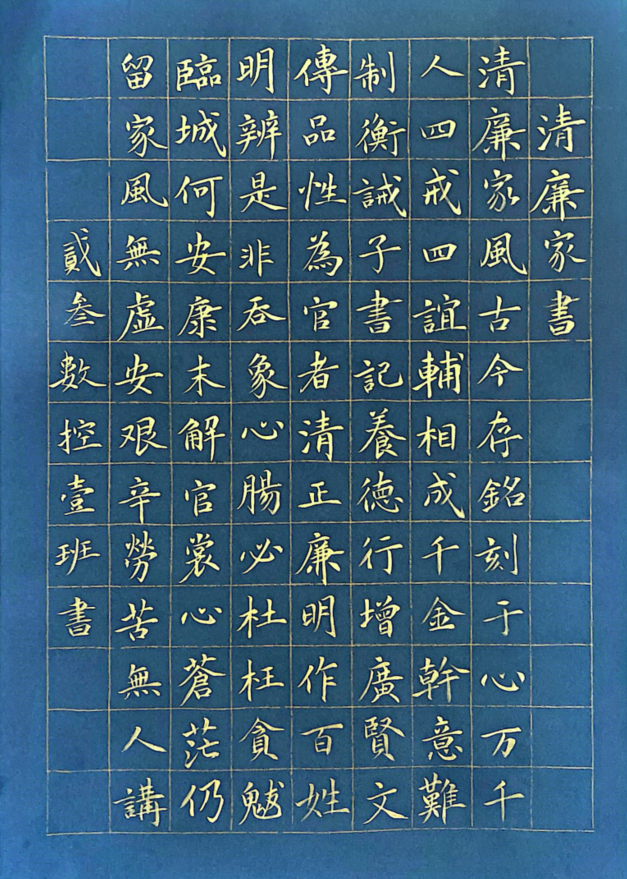 清廉家書
清廉家風古今存銘刻于心万千
人四戒四誼輔相成千金幹意難
制衡誡子書記養德行增廣賢文
傳品性為官者清正廉明作百姓
明辨是非吞象心腸必杜枉貪魃
臨城何安康未解官裳心蒼茫仍
留家風無虛安艰辛勞苦無人講
貳叁數控壹班書